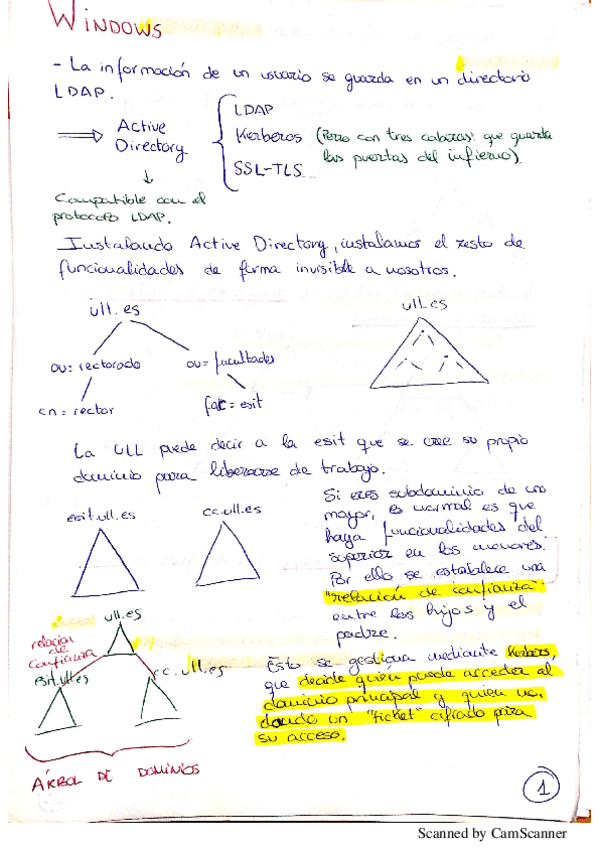 WINDOWS
- La información de un usuario se guarda en un directorio
LDAP.
Active
Directory
LDAP
Kerberos (Perro con tres cabezas que guarda
las puertas del infierno).
SSL-TLS...
Compatible con el
protocolo LDAP.
Instalando Active Directory, instalamos el resto de
funcionalidades de forma invisible a nosotros.
ull.es
ou= rectorado
ou= facultades
cn= rector
fac= esit
ull.es
La ULL puede decir a la esit que se cree su propio
dominio para liberarse de trabajo.
esit.ull.es
cc.ull.es
Si eres subdominio de uno
mayor, es normal es que
haya funcionalidades del
superior en los menores.
Por ello se establece una
"relación de confianza"
entre los hijos y el
padre.
ull.es
relacion
de
confianza
esit.ull.es
cc.ull.es
Esto se gestiona mediante Kerberos,
que decide quién puede acceder al
dominio principal y quien no,
dando un "ticket" cifrado para
su acceso.
ÁRBOL DE DOMINIOS
1
Scanned by CamScanner